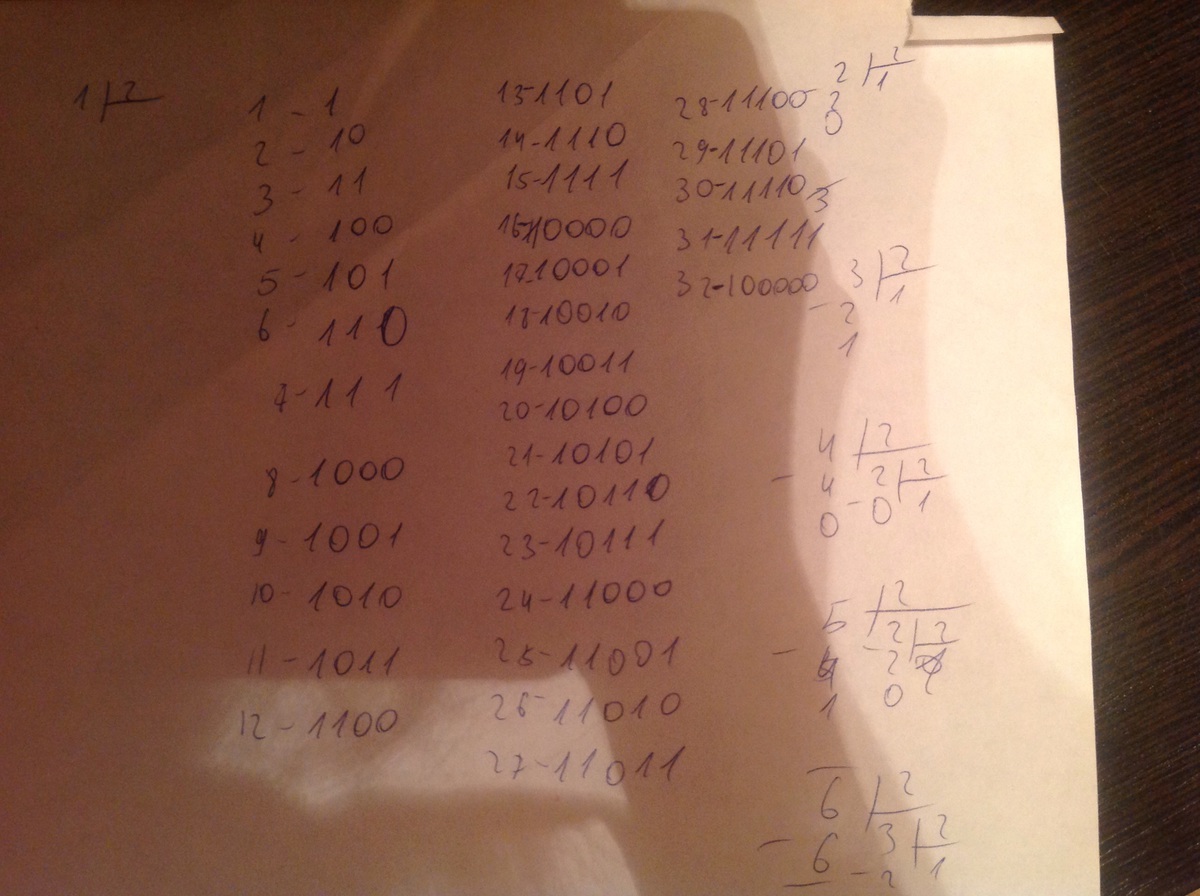 1 2
1 - 1
2 - 10
3 - 11
4 - 100
5 - 101
6 - 110
7 - 111
8 - 1000
9 - 1001
10 - 1010
11 - 1011
12 - 1100
13-1101
14-1110
15-1111
16-10000
17-10001
18-10010
19-10011
20-10100
21-10101
22-10110
23-10111
24-11000
25-11001
26-11010
27-11011
28-11100
29-11101
30-11110
31-11111
32-100000
2 2
2 1
0
3 2
- 2 1
1
4 2
- 4 2 2
0 - 0 1
5 2
- 4 - 2 2
1 2
0
6 2
- 6 3 2
- 2 1